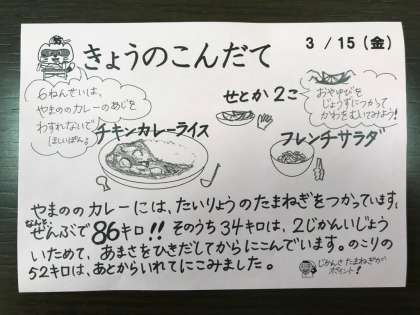 きょうのこんだて
3/15(金)
6ねんせいは、
やまののカレーのあじを
わすれないで
ほしいぽん。
せとか2こ
おやゆびを
じょうずにつかって
かわをむいてみよう!
チキンカレーライス
フレンチサラダ
やまののカレーには、たいりょうのたまねぎをつかっています。
なんと、
ぜんぶで86キロ!!そのうち34キロは、2じかんいじょう
いためて、あまさをひきだしてからにこんでいます。のこりの
52キロは、あとからいれてにこみました。
じかんさたまねぎが
ポイント!